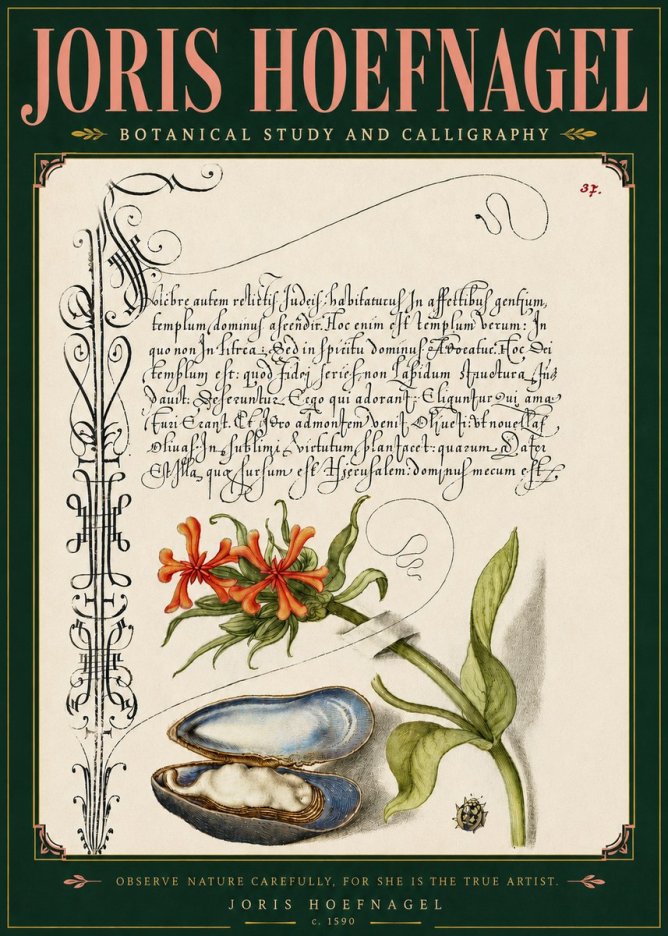 JORIS HOEFNAGEL
BOTANICAL STUDY AND CALLIGRAPHY
37.
libre autem relictis Judeis: habitaturus In affectibus gentium,
templum dominus ascendit. Hoc enim est templum verum: In
quo non In litrea: Sed in spiritu dominus Avocatuc. Hoc Dei
templum est: quod fidej series non lapidum structura
adorant: Eliguntur qui ama=
Erant. Et admontem venit Oliueti: Vt nouellas
Oliuas In sublimi virtutum plantacet: quarum Dater
Est Illa, quæ sursum est Hjerusalem: dominus mecum est
OBSERVE NATURE CAREFULLY, FOR SHE IS THE TRUE ARTIST.
JORIS HOEFNAGEL
c. 1590